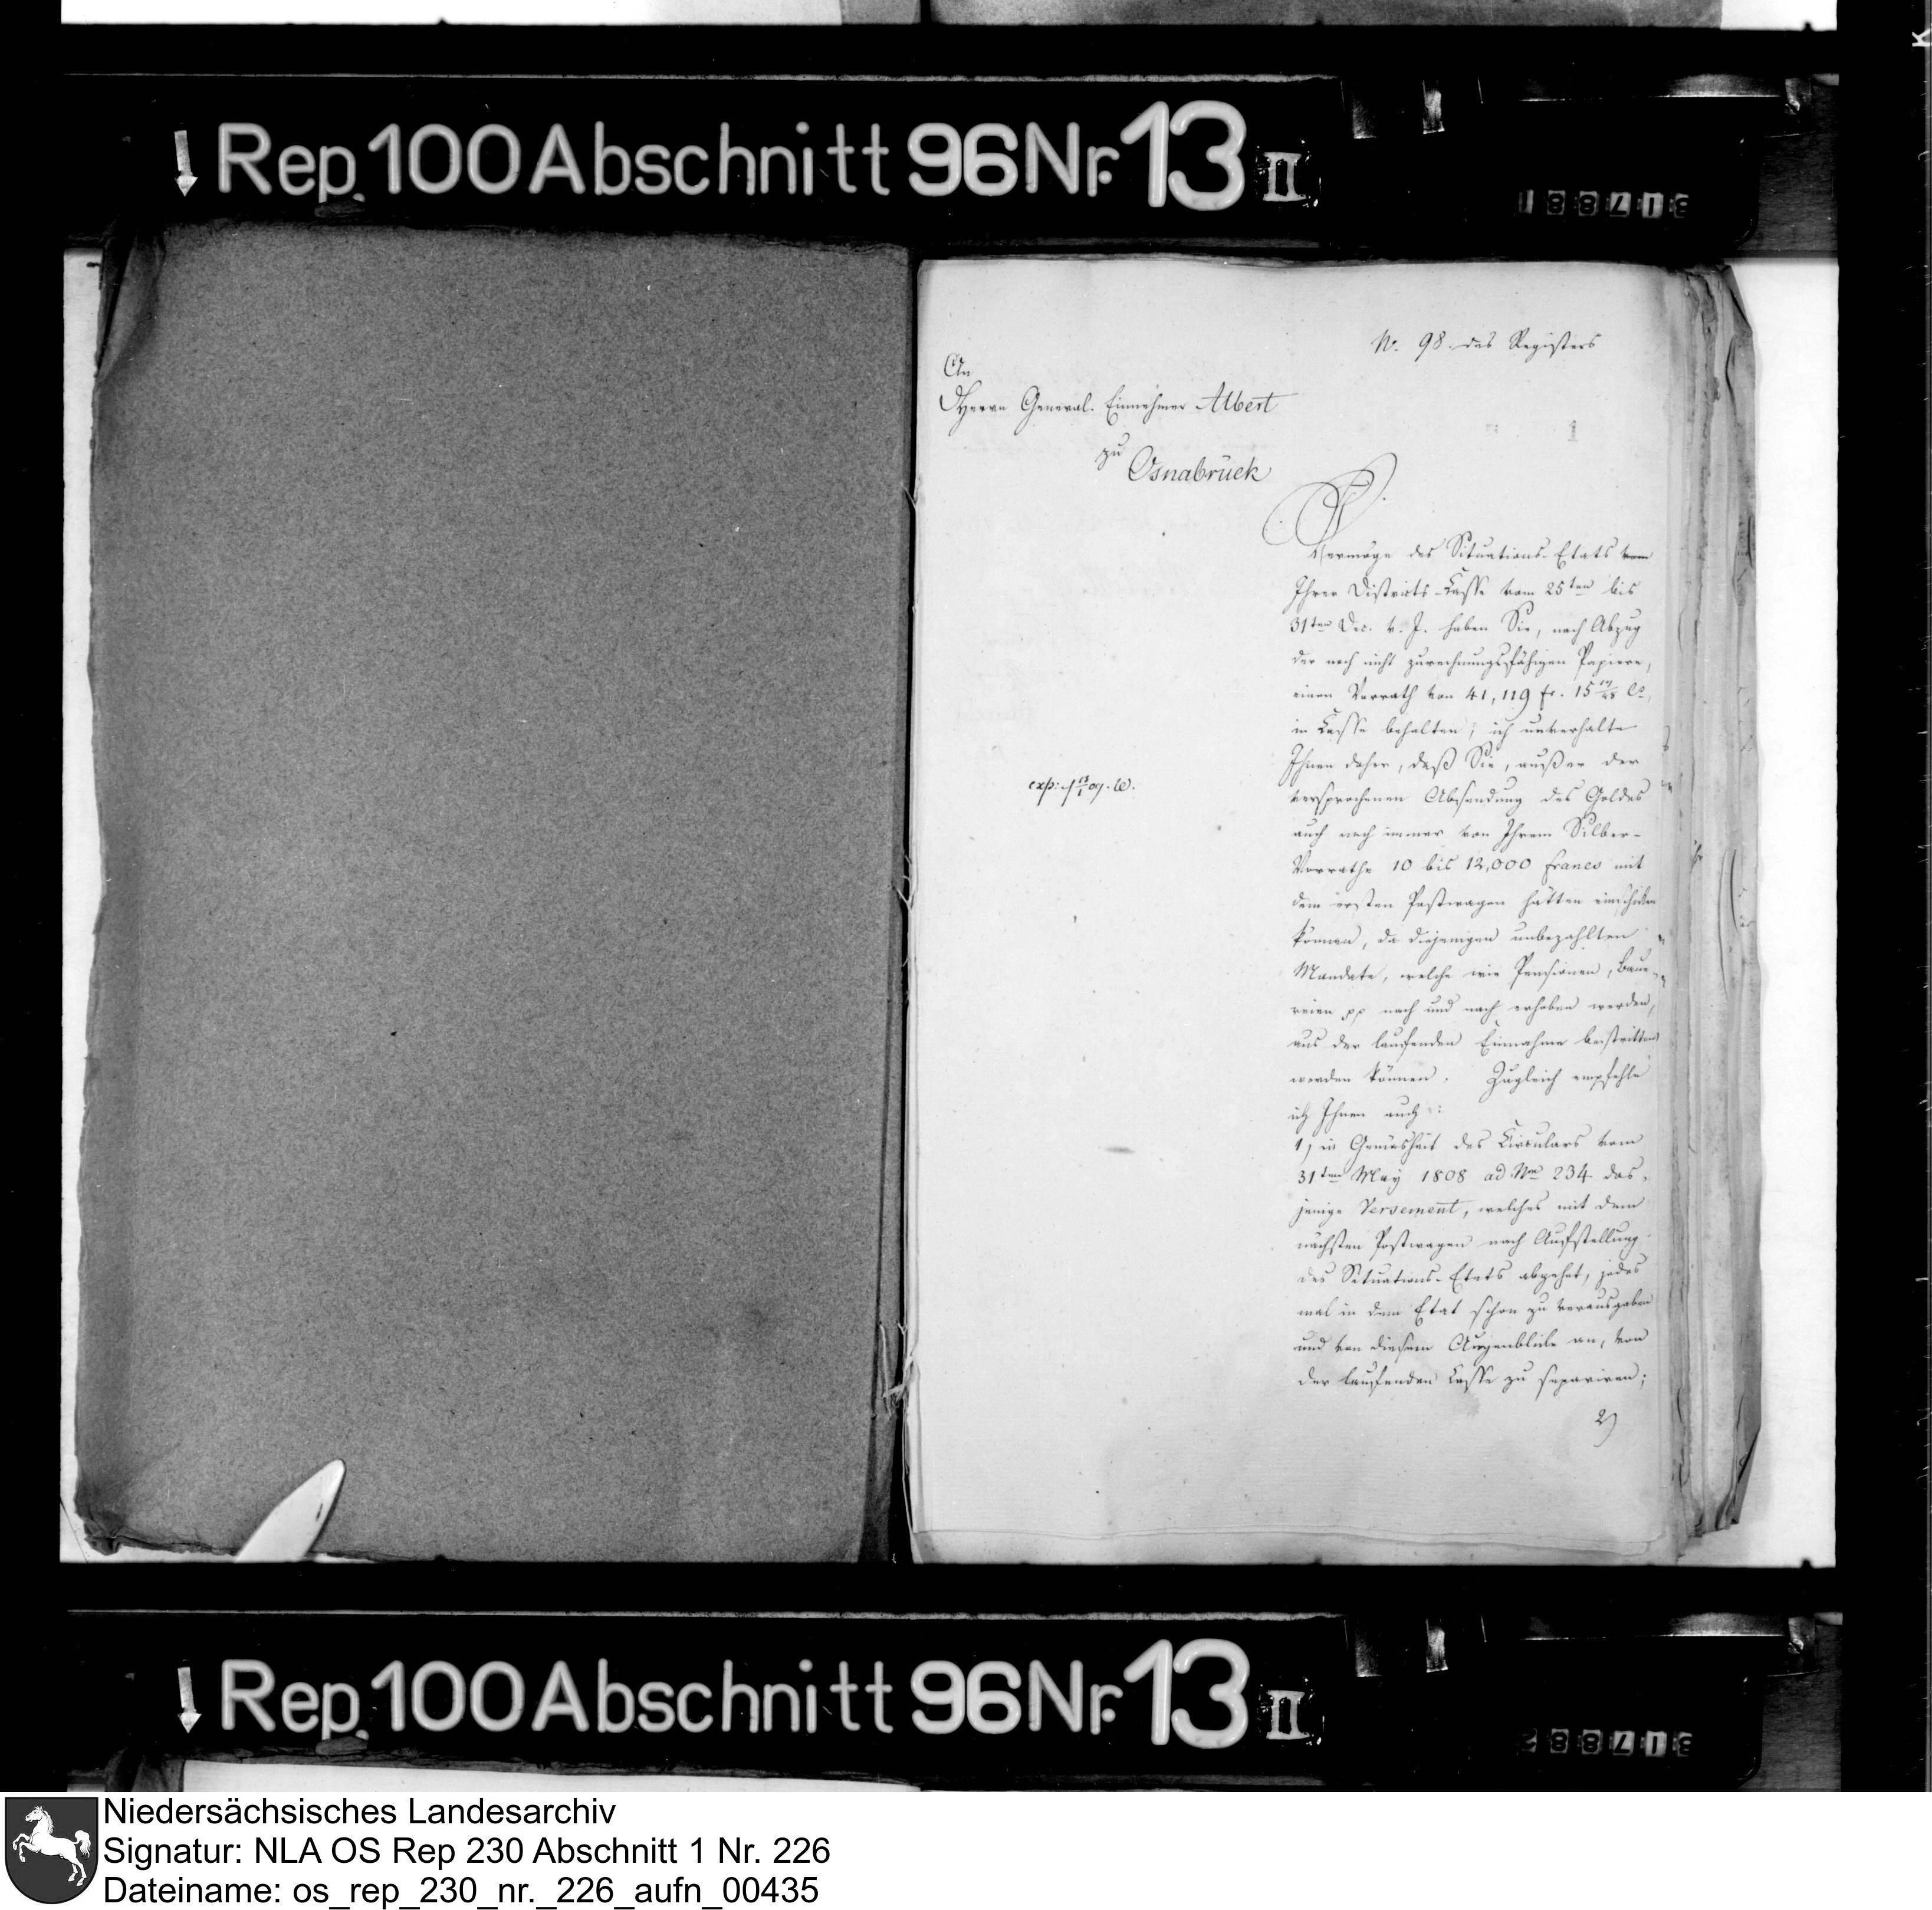 Rep. 100 Abschnitt 96 Nr. 13 II
317881
N. 98. des Registers
An
Herrn General-Einnehmer Albert
zu
Osnabrück
1
Vermöge des Situations-Etats vom
Ihrer Districts-Casse vom 25ten bis
31ten Dec. v. J. haben Sie, nach Abzug
der noch nicht zurechnungsfähigen Papiere,
einen Vorrath von 41,119 fr. 15 Cs.
in Casse behalten; ich unverhalte
Ihnen daher, daß Sie, außer der
versprochenen Absendung des Goldes
auch noch immer von Ihrem Silber-
Vorrathe 10 bis 12,000 francs mit
dem ersten Postwagen hätten einschicken
können, da diejenigen unbezahlten
Mandate, welche wie Pensionen, Baue-
reien pp nach und nach erhoben werden,
aus der laufenden Einnahme bestritten
werden können. Zugleich empfehle
ich Ihnen auch:
1) in Gemäsheit des Circulars vom
31ten May 1808 ad Nro 234 das-
jenige Versement, welches mit dem
nächsten Postwagen nach Aufstellung
des Situations-Etats abgehet, jedes
mal in dem Etat schon zu verausgaben
und von diesem Augenblicke an, von
der laufenden Casse zu separiren;
2)
Rep. 100 Abschnitt 96 Nr. 13 II
317882
Niedersächsisches Landesarchiv
Signatur: NLA OS Rep 230 Abschnitt 1 Nr. 226
Dateiname: os_rep_230_nr._226_aufn_00435